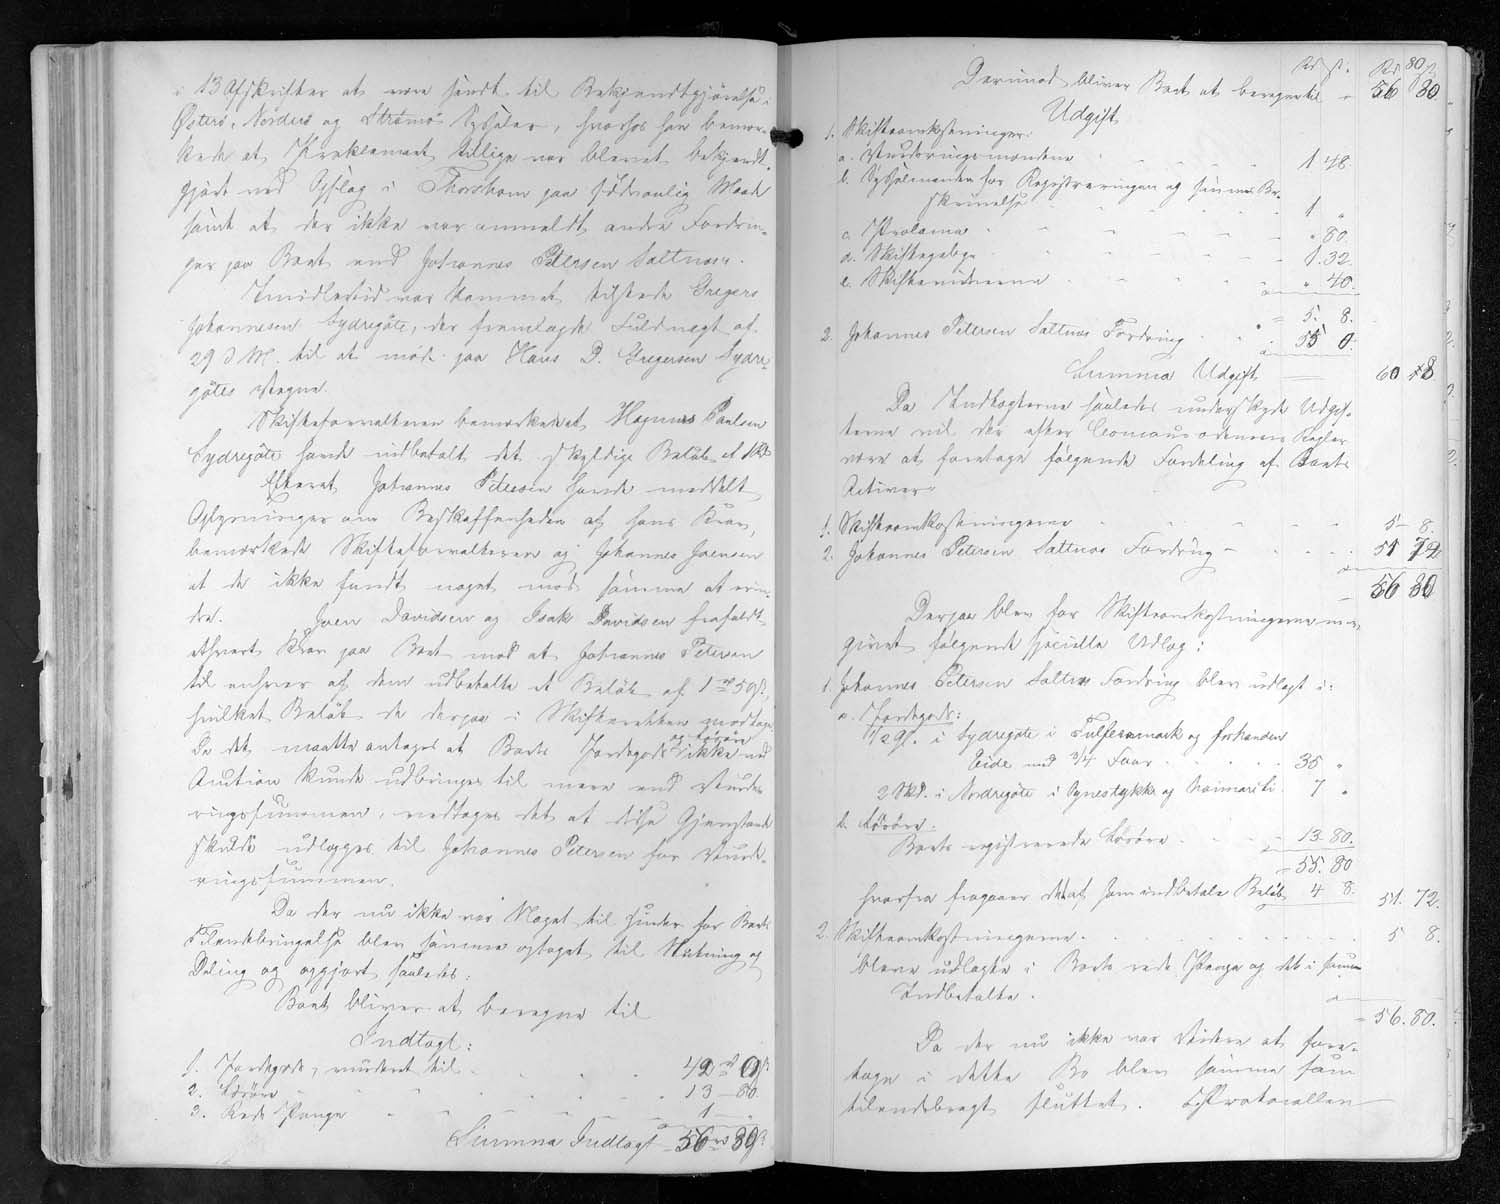 i 13 Afskrifter at være sendt til Bekjendtgjørelse i
Østerø, Norderø og Strømø Sysseler, hvorhos han bemær-
kede at Proklamaet tillige var blevet bekjendt-
gjort ved Opslag i Thorshavn paa sædvanlig Maade
samt at der ikke var anmeldt andre Fordrin-
ger paa Boet end Johannes Petersen Saltnæs.
Imidlertid var kommet tilstede Gregers
Johannesen Sydregøte, der fremlagde Fuldmagt af
29 d. M. til at møde paa Hans D. Gregersen Sydre-
gøtes Vegne.
Skifteforvalteren bemærkede at Magnus Poulsen
Sydregøte havde indbetalt det skyldige Beløb
Efterat Johannes Petersen havde meddelt
Oplysninger om Beskaffenheden af hans Krav,
bemærkede Skifteforvalteren og Johannes Joensen
at de ikke fandt noget mod samme at erin-
dre. Joen Davidsen og Isak Davidsen frafaldt
ethvert Krav paa Boet mod at Johannes Petersen
til enhver af dem udbetalte et Beløb af 1 rd 59 s,
hvilket Beløb de derpaa i Skifteretten modtog.
Da det maatte antages at Boets Jordegods og Løsøre ikke ved
Auction kunde udbringes til mere end Vurde-
ringssummen, vedtoges det at disse Gjenstande
skulde udlægges til Johannes Petersen for Vurde-
ringssummen.
Da der nu ikke var Noget til Hinder for Boets
Tilendebringelse blev samme optaget til Slutning og
Deling og opgjort saaledes:
Boet bliver at beregne til
Indtægt:
1. Jordegods, vurderet til 42 rd 0 s
2. Løsøre 13 — 80.
3. Rede Penge 1 — "
Summa Indtægt 56 rd 80 s
Derimod bliver Boet at beregne til 56 80.
Udgift
1. Skifteomkostninger:
a. Vurderingsmændene 1 48.
b. Sysselmanden for Registreringen og sammes Be-
skrivelse 1 "
c. Proclama " 80.
d. Skiftegebyr 1. 32.
e. Skiftevidnerne " 40.
5. 8.
2. Johannes Petersen Saltnæs Fordring 55 0.
Summa Udgift 60 8.
Da Indtægterne saaledes underskyde Udgif-
terne vil der efter Concursordenens Regler
være at foretage følgende Fordeling af Boets
Activer:
1. Skifteomkostningerne 5 8.
2. Johannes Petersen Saltnæs Fordring 51 72
56 80
Derpaa blev for Skifteomkostningerne
givet følgende specielle Udlæg:
1. Johannes Petersen Saltnæs Fordring blev udlagt i:
a. Jordegods:
1/2 Gl. i Sydregøte i Fulfermark og forhenden
Eide med 3/4 Faar 35 "
2 Skd. i Nordregøte i 7 "
b. Løsøre:
Boets registrerede Løsøre 13. 80.
55. 80
hvorfra fragaaer det at ham indbetale Beløb 4 8. 51. 72.
2. Skifteomkostningerne 5 8.
bleve udlagte i Boets rede Penge og det i samme
Indbetalte.
56. 80.
Da der nu ikke var Videre at fore-
tage i dette Bo blev samme som
tilendebragt sluttet. Protocollen